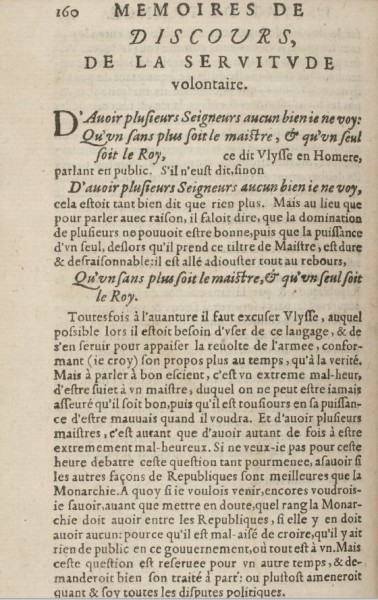 160 MEMOIRES DE
DISCOVRS,
DE LA SERVITVDE
volontaire.
D'Auoir plusieurs Seigneurs aucun bien ie ne voy:
Qu'vn sans plus soit le maistre, & qu'vn seul
soit le Roy, ce dit Vlysse en Homere,
parlant en public. S'il n'eust dit, sinon
D'auoir plusieurs Seigneurs aucun bien ie ne voy,
cela estoit tant bien dit que rien plus. Mais au lieu que
pour parler auec raison, il faloit dire, que la domination
de plusieurs ne pouuoit estre bonne, puis que la puissance
d'vn seul, deslors qu'il prend ce tiltre de Maistre, est dure
& desraisonnable: il est allé adiouster tout au rebours,
Qu'vn sans plus soit le maistre, & qu'vn seul soit
le Roy.
Toutesfois à l'auanture il faut excuser Vlysse, auquel
possible lors il estoit besoin d'vser de ce langage, & de
s'en seruir pour appaiser la reuolte de l'armee, confor-
mant (ie croy) son propos plus au temps, qu'à la verité.
Mais à parler à bon escient, c'est vn extreme mal-heur,
d'estre suiet à vn maistre, duquel on ne peut estre iamais
asseuré qu'il soit bon, puis qu'il est tousiours en sa puissan-
ce d'estre mauuais quand il voudra. Et d'auoir plusieurs
maistres, c'est autant que d'auoir autant de fois à estre
extremement mal-heureux. Si ne veux-ie pas pour ceste
heure debatre ceste question tant pourmenee, asauoir si
les autres façons de Republiques sont meilleures que la
Monarchie. A quoy si ie voulois venir, encores voudrois-
ie sauoir, auant que mettre en doute, quel rang la Monar-
chie doit auoir entre les Republiques, si elle y en doit
auoir aucun: pource qu'il est mal-aisé de croire, qu'il y ait
rien de public en ce gouuernement, où tout est à vn. Mais
ceste question est reseruee pour vn autre temps, & de-
manderoit bien son traité à part: ou plustost ameneroit
quant & soy toutes les disputes politiques.